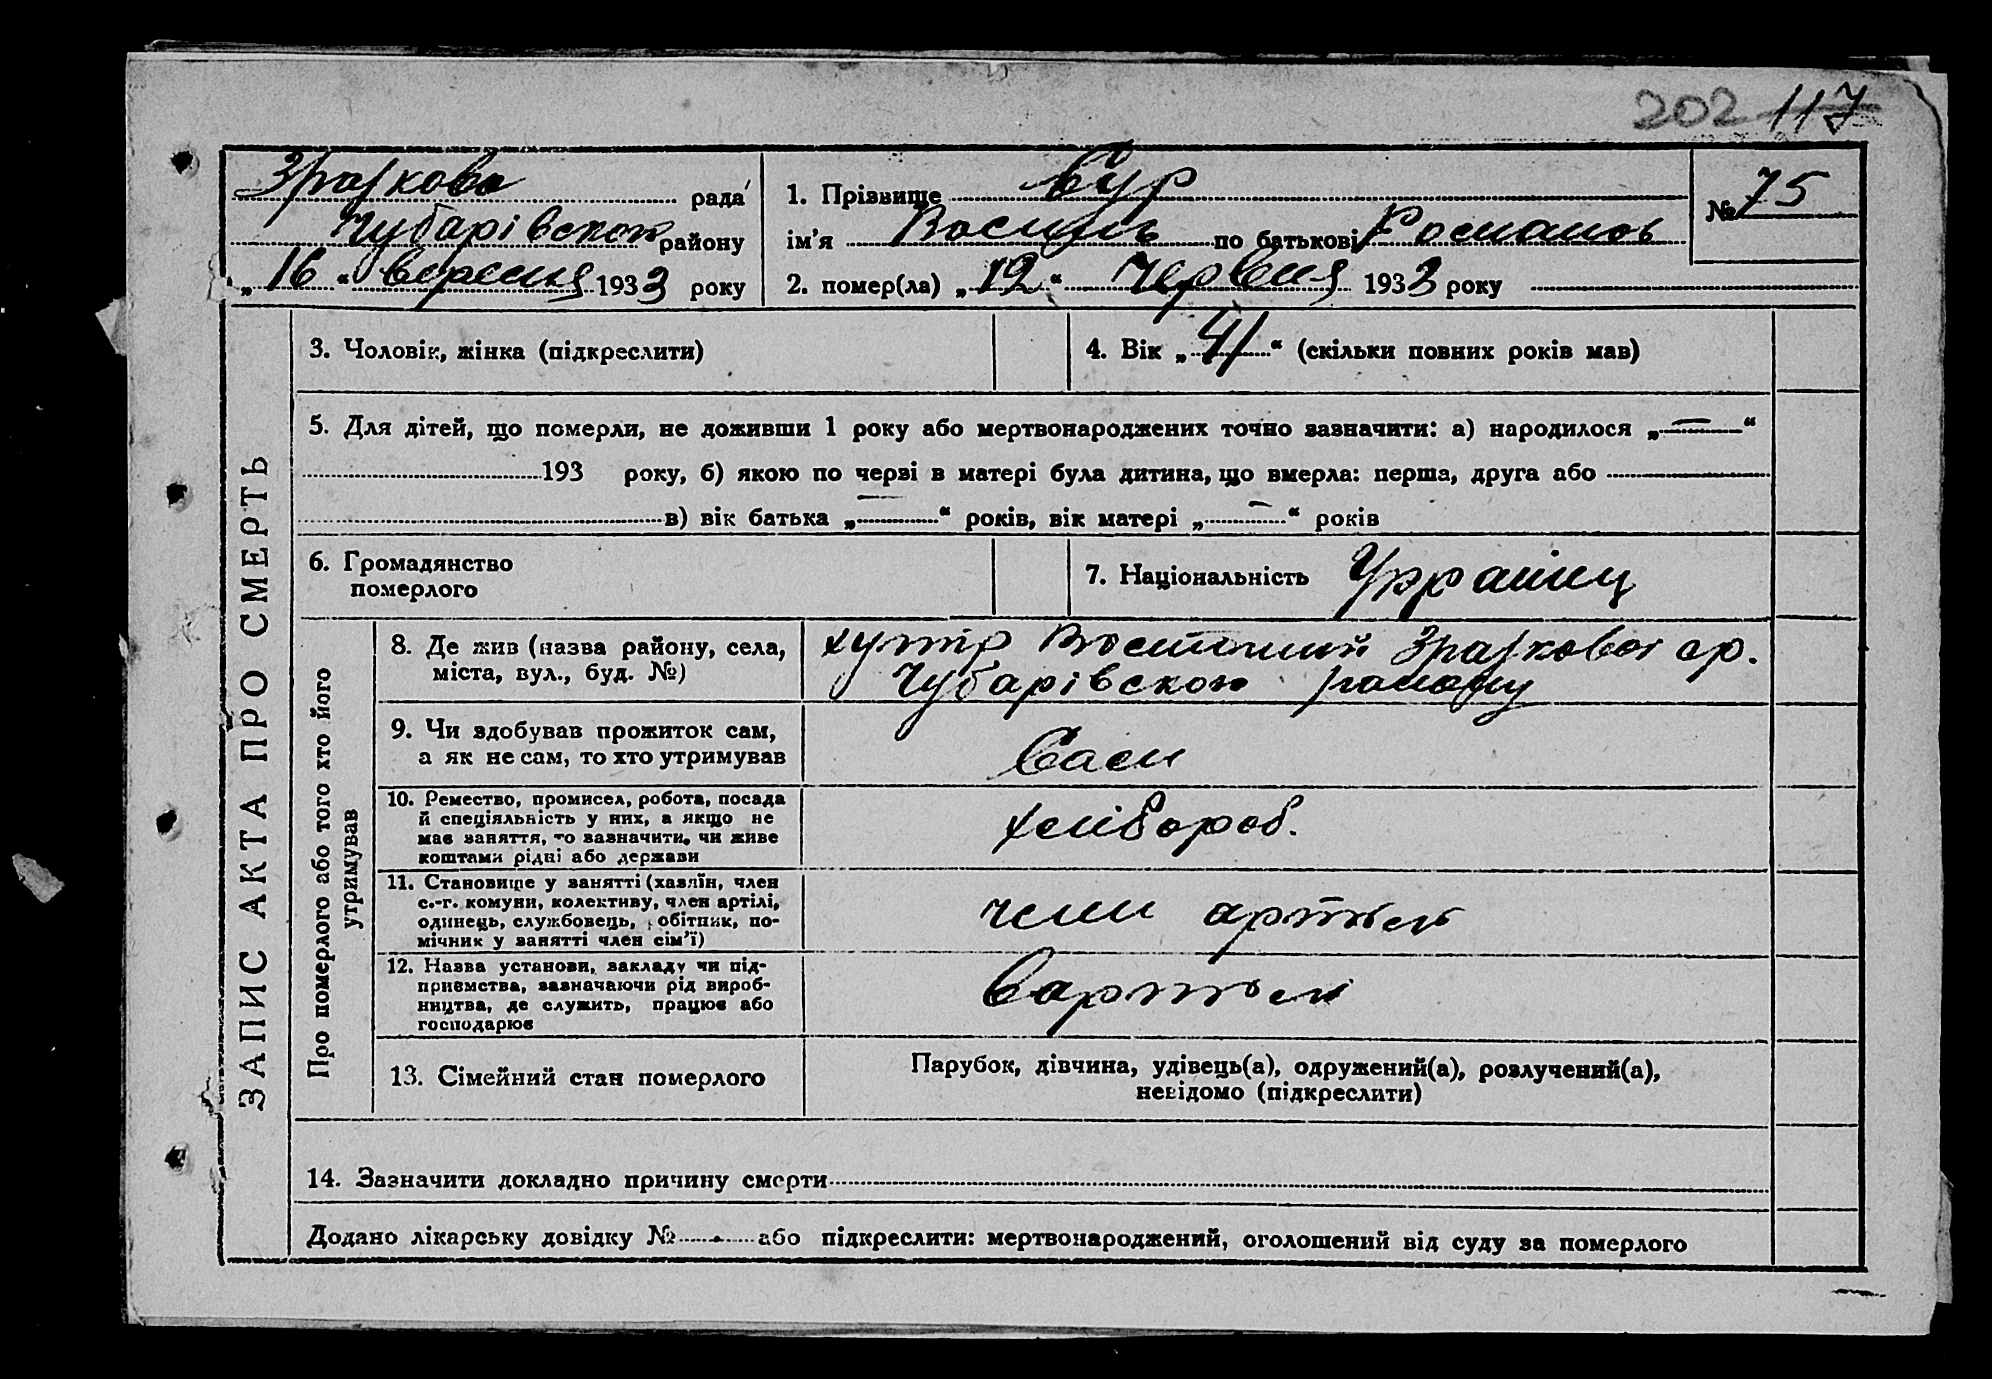 202 117
Зразкова рада
Чубарівского району
„16“ вересня 1933 року
1. Прізвище Бур
ім’я Василь по батькові Романов
2. помер(ла) „12“ червня 1933 року
№ 75
ЗАПИС АКТА ПРО СМЕРТЬ
3. Чоловік, жінка (підкреслити)
4. Вік „41“ (скільки повних років мав)
5. Для дітей, що померли, не доживши 1 року або мертвонароджених точно зазначити: а) народилося „—“
193 року, б) якою по черві в матері була дитина, що вмерла: перша, друга або
в) вік батька „—“ років, вік матері „—“ років
6. Громадянство
померлого
7. Національність Украинц
Про померлого або того хто його
утримував
8. Де жив (назва району, села,
міста, вул., буд. №)
хутір Зразковоі ср.
Чубарівского району
9. Чи здобував прожиток сам,
а як не сам, то хто утримував
Сам
10. Ремество, промисел, робота, посада
й спеціяльність у них, а якщо не
має заняття, то зазначити, чи живе
коштами рідні або держави
хлібороб.
11. Становище у занятті (хазяїн, член
с.-г. комуни, колективу, член артілі,
одинець, службовець, робітник, по-
мічник у занятті член сім’ї)
член артіли
12. Назва установи, закладу чи під-
приємства, зазначаючи рід вироб-
ництва, де служить, працює або
господарює
Вартіли
13. Сімейний стан померлого
Парубок, дівчина, удівець(а), одружений(а), розлучений(а),
невідомо (підкреслити)
14. Зазначити докладно причину смерти
Додано лікарську довідку № - або підкреслити: мертвонароджений, оголошений від суду за померлого